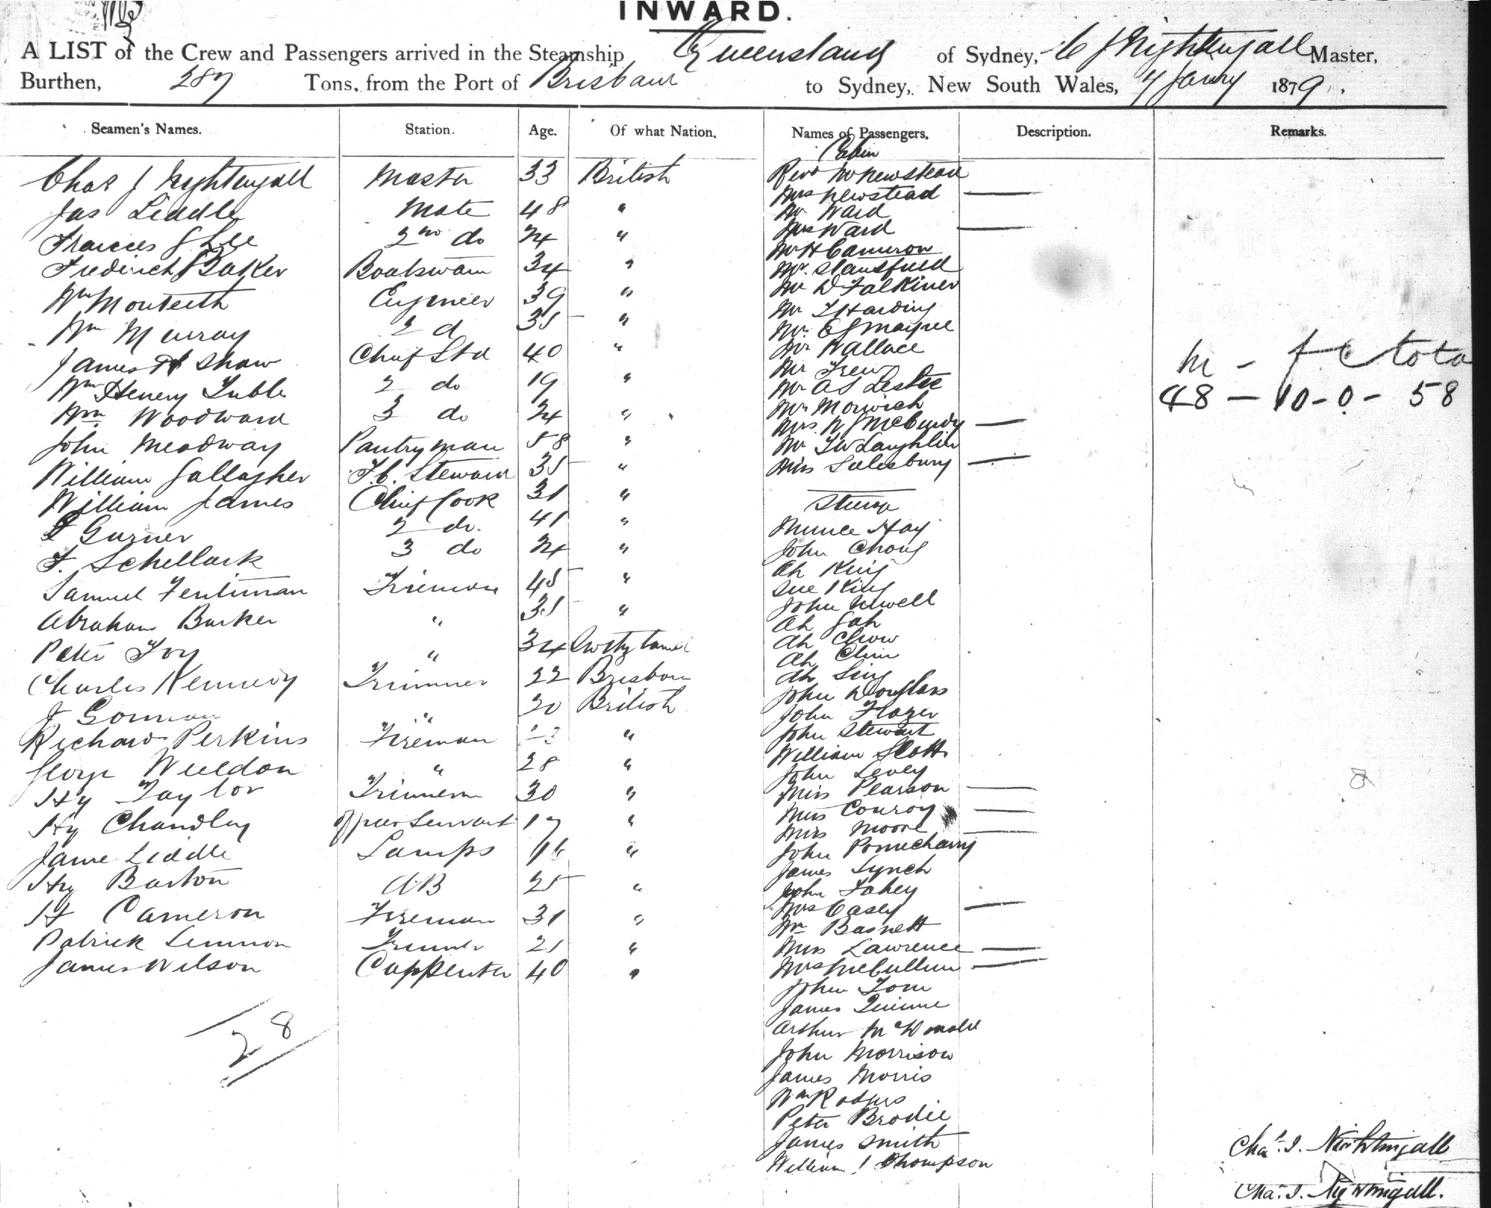 INWARD.
A LIST of the Crew and Passengers arrived in the Steamship Queensland of Sydney, C J Nightingall Master,
Burthen, 287 Tons, from the Port of Brisbane to Sydney, New South Wales, 4 Janry 1879.
Seamen's Names. Station. Age. Of what Nation. Names of Passengers. Description. Remarks.
Cabin
Chas J Nightingall Master 33 British
Jas Liddle Mate 48 "
Francis J Lee 2nd do 24 "
Frederick Baker Boatswain 34 "
Wm Monteith Engineer 39 "
Wm Murray 2 d 35 "
James H Shaw Chief Std 40 "
Wm Henry Tubb 2 do 19 "
Wm Woodward 3 do 24 "
John Meadway Pantryman 58 "
William Gallagher F.C. Steward 35 "
William James Chief Cook 31 "
Garner 2 do. 41 "
F. Schellack 3 do 24 "
Samuel Fentiman Fireman 45 "
Abraham Barker " 35 "
Peter Foy " 34
Charles Kennedy Trimmer 22 Brisbane
J Gorman " 20 British
Richard Perkins Fireman "
George Weeldon " 28 "
Hy Taylor Trimmer 30 "
Hy Chandley Servant 17 "
Jame Liddle Lamps 16 "
Hy Barton AB 25 "
H Cameron Fireman 31 "
Patrick Lennon Trimmer 21 "
James Wilson Carppenter 40 "
28
Revd Mr Newstead
Mrs Newstead
Mr Ward
Mrs Ward
Mr H Cameron
Mr. Stansfield
Mr D Falkiner
Mr T Harding
Mr E J Mayne
Mr Wallace
Mr Trew
Mr A S Leslie
Mr Morwich
Mrs W J McCurdy
Mr T McLaughlin
Miss Salesbury
Steerge
Hay
John Chong
Ah King
Sue King
John Newell
Ah Gah
Ah Chow
Ah Chin
Ah Sing
John Douglass
John Frazer
John Stewart
William Scott
John Levey
Miss Pearson
Miss Conroy
Miss Moore
John Pomecharry
James Lynch
John Fahey
Mrs Casey
Wm Basnett
Miss Lawrence
Mrs McCullum
John Tom
James Quinne
Arthur McDonald
John Morrison
James Morris
Wm Rodgers
Peter Brodie
James Smith
William J Thompson
M - f c total
48 - 10 - 0 - 58
Chas. J. Nightingall
Chas. J. Nightingall.